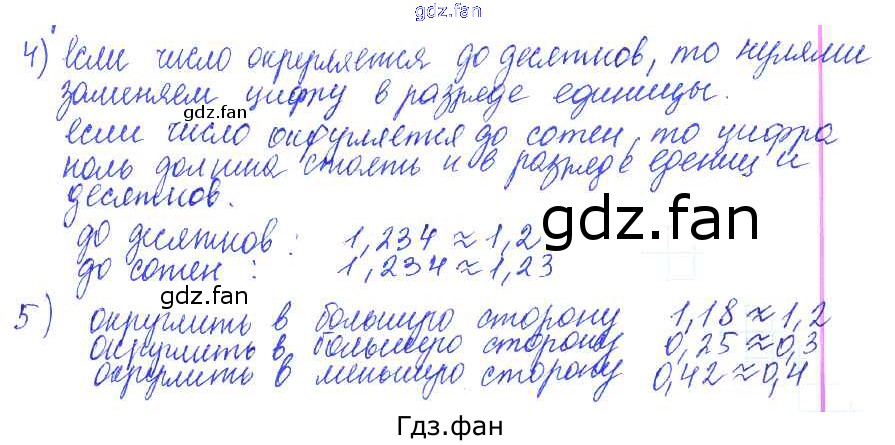 gdz.fan
4) если число округляется до десятков, то нулями
заменяем цифру в разряде единицы.
gdz.fan
если число округляется до сотен, то цифра
ноль должна стоять и в разряде едениц и
десятков.
gdz.fan
до десятков : 1,234 ≈ 1,2
до сотен : 1,234 ≈ 1,23
gdz.fan
5) округлить в большую сторону 1,18 ≈ 1,2
округлить в большую сторону 0,25 ≈ 0,3
округлить в меньшую сторону 0,42 ≈ 0,4
Гдз.фан